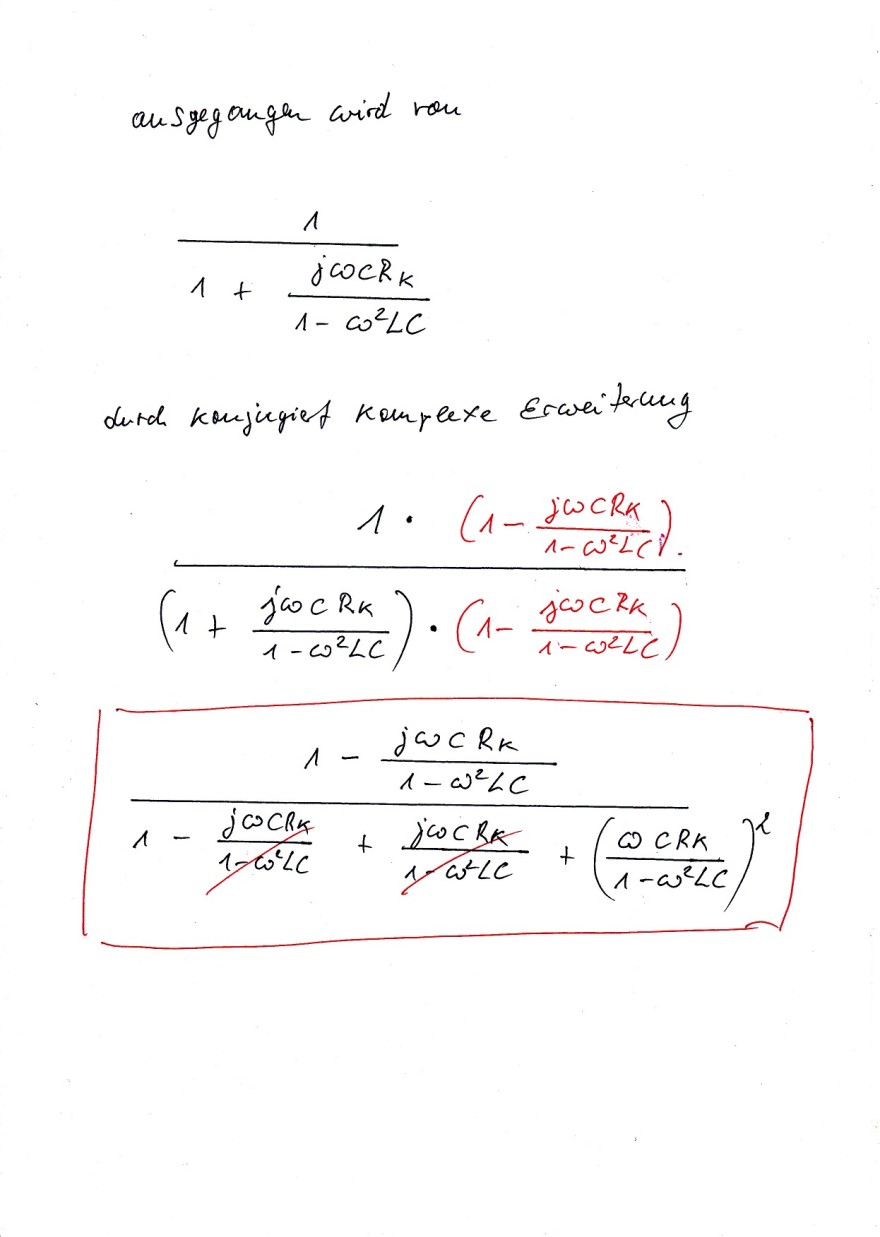 ausgegangen wird von
1
1 + jωCR_K
1 - ω²LC
durch konjugiert komplexe Erweiterung
1 · (1 - jωCR_K
1 - ω²LC).
(1 + jωCR_K / 1 - ω²LC) · (1 - jωCR_K / 1 - ω²LC)
1 - jωCR_K
1 - ω²LC
1 - jωCR_K / 1 - ω²LC + jωCR_K / 1 - ω²LC + (ωCR_K / 1 - ω²LC)²